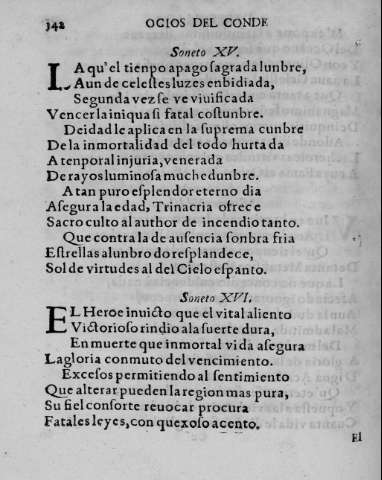 342 OCIOS DEL CONDE
Soneto XV.
LA qu'el tienpo apago sagrada lunbre,
Aun de celestes luzes enbidiada,
Segunda vez se ve viuificada
Vencer la iniqua si fatal costunbre.
Deidad le aplica en la suprema cunbre
De la inmortalidad del todo hurtada
A tenporal injuria, venerada
De rayos luminosa muchedunbre.
A tan puro esplendor eterno dia
Asegura la edad, Trinacria ofrece
Sacro culto al author de incendio tanto.
Que contra la de ausencia sonbra fria
Estrellas alunbrò do resplandece,
Sol de virtudes al del Cielo espanto.
Soneto XVI.
EL Heroe inuicto que el vital aliento
Victorioso rindio ala suerte dura,
En muerte que inmortal vida asegura
La gloria conmuto del vencimiento.
Excesos permitiendo al sentimiento
Que alterar pueden la region mas pura,
Su fiel consorte reuocar procura
Fatales leyes, con quexoso acento.
El